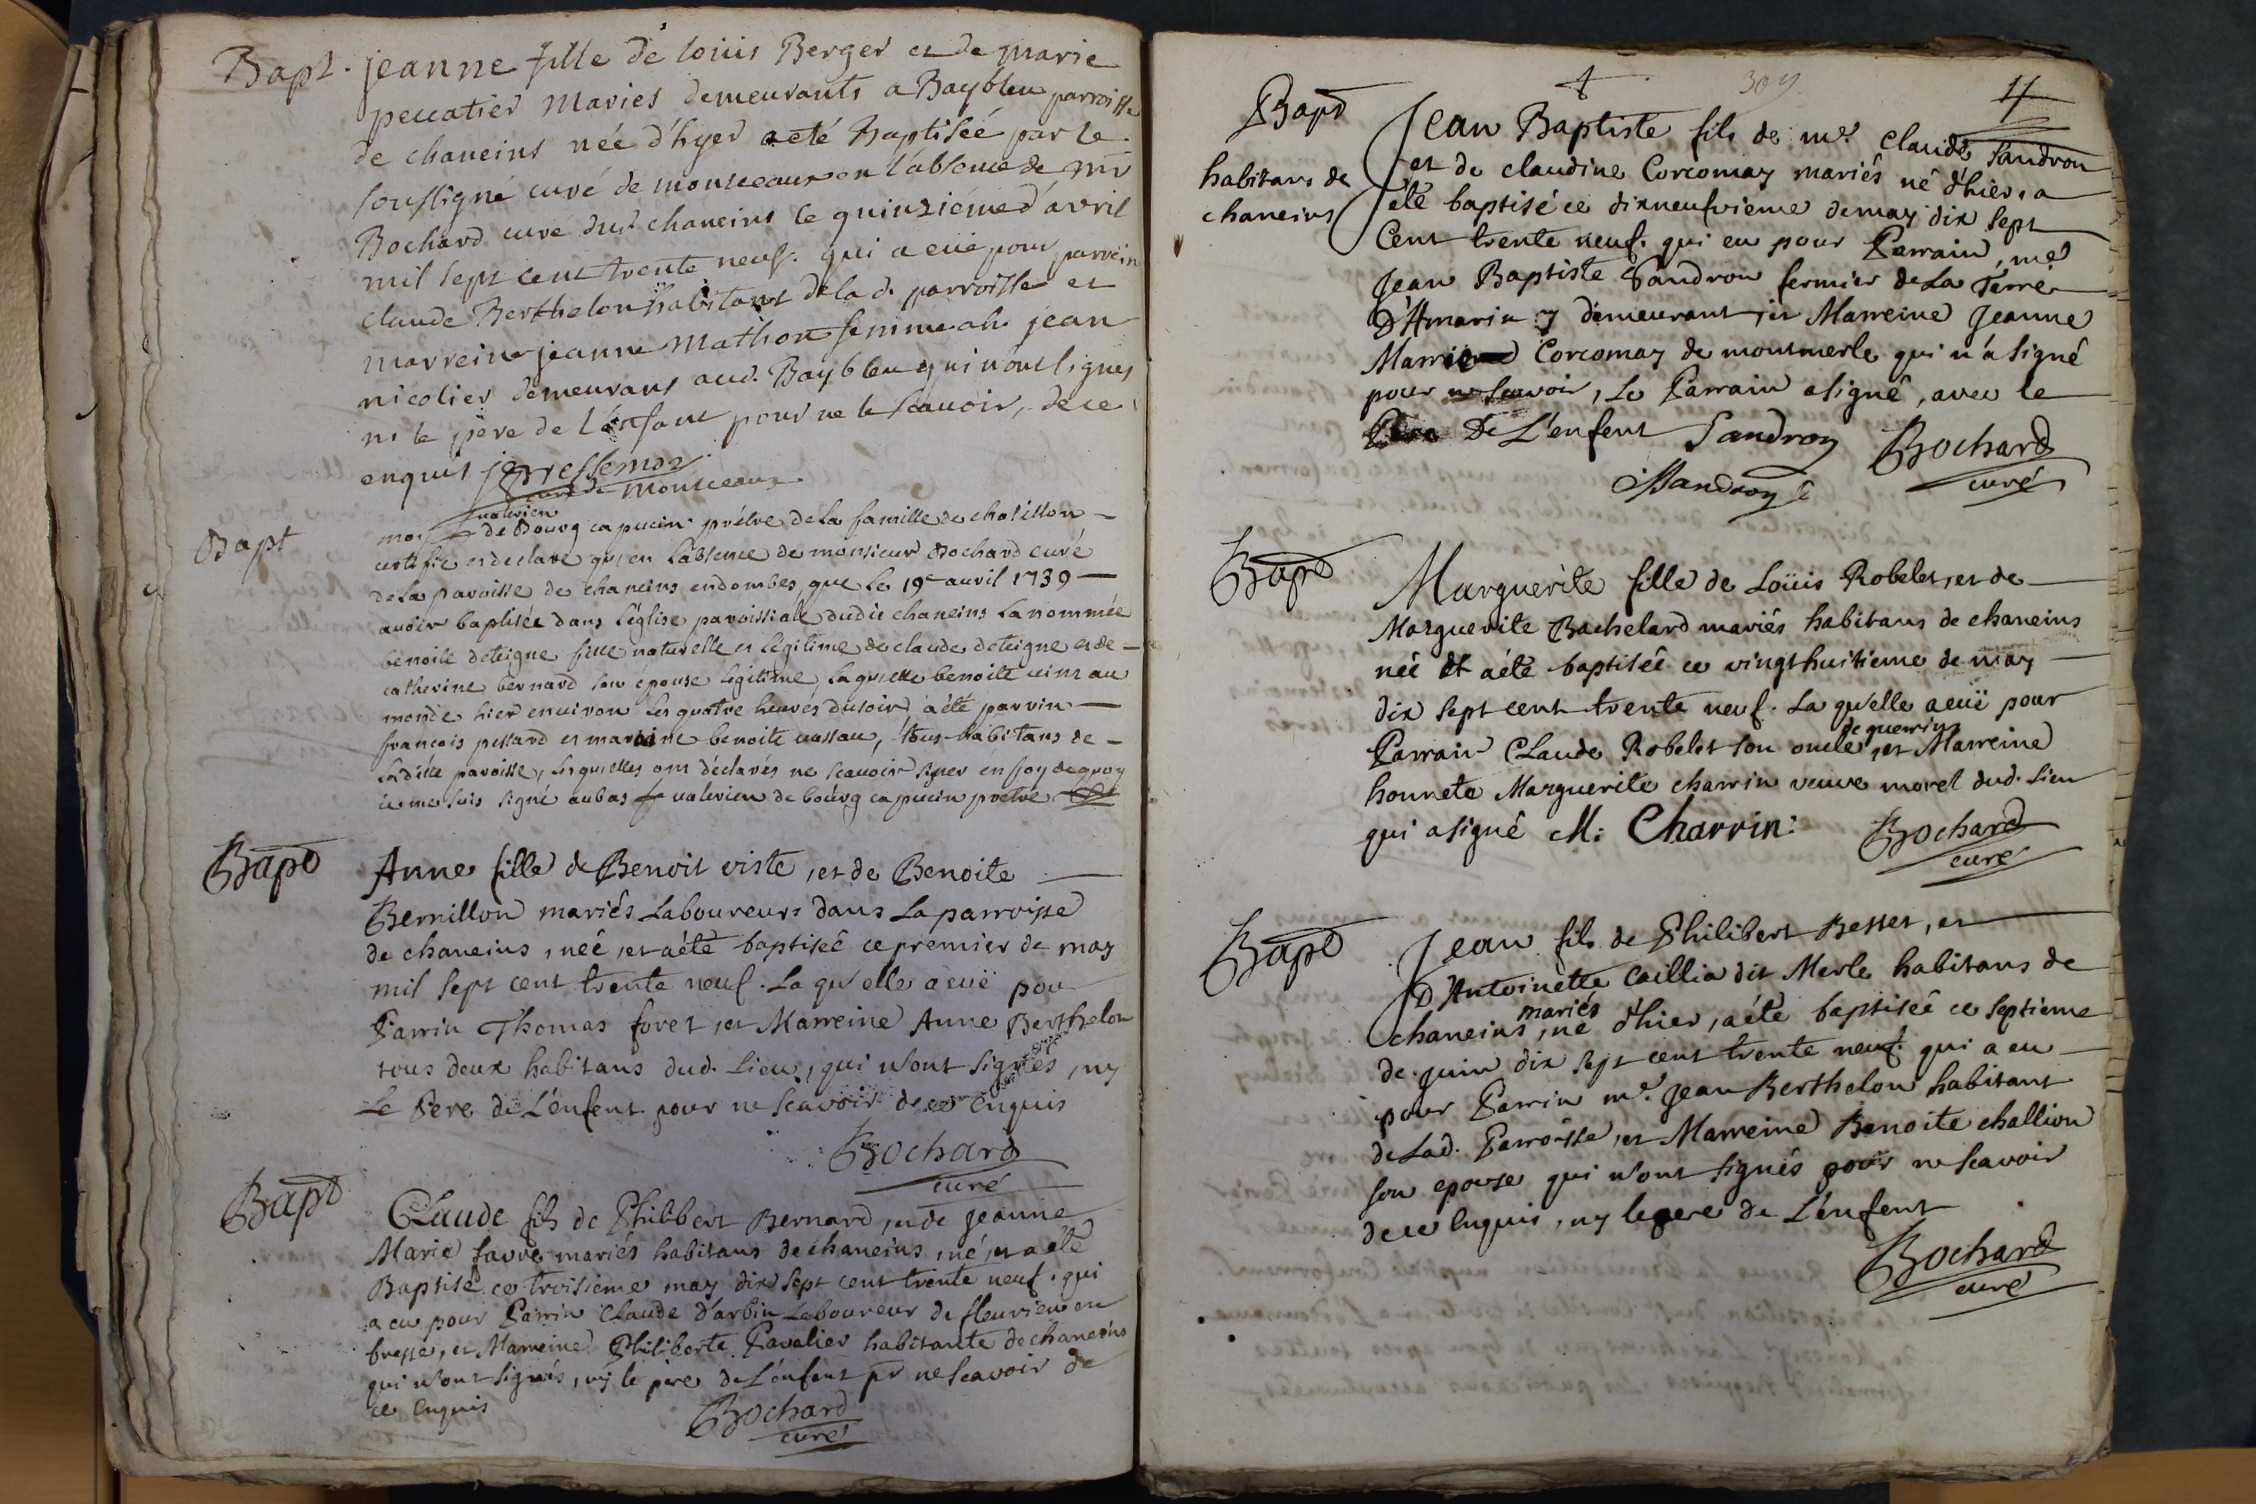 Bapt. jeanne fille de loüis Berger et de marie
peccatier Mariés demeurants a Baybleu parroisse
de chaneins née d'hyer a eté Baptiséé par le
soussigné curé de monceaux en l'absence de mr
Bochard curé dud chaneins le quinziéme d'avril
mil sept cent trente neuf. qui a eüe pour parrein
claude Berthelon habitant de la d. parroisse et
marreine jeanne Mathon femme a jean
nicolier demeurans aud. Baybleu qui n'ont signes
ni le pere de l'enfant pour ne le scauoir, de ce
enquis
curé de Monceaux
Bapt
valerien
moy de Bourg capucin prêtre de la famille de chatillon
certifie et declare qu'en l'absence de monsieur Bochard curé
de la paroisse de chaneins endombes, que le 19e auril 1739
auoir baptisée dans l'église paroissiale dudit chaneins la nommée
benoite deteigne fille naturelle et légitime de claude deteigne et de
catherine bernard son épouse légitime, laquelle benoite uint au
monde hier enuiron les quatre heures du soir, a été parrin
francois pessard et mareine benoite uassau, tous habitans de
ladite paroisse, lesquelles ont déclarés ne scauoir signer en foy de quoy
ie me suis signé aubas fr valerien de boúrg capucin pretre
Bapt
Anne fille de Benoit viste, et de Benoite
Bernillon mariés Laboureurs dans La parroisse
de chaneins, neé, et a été baptiseé ce premier de may
mil sept cent trente neuf. La qu'elle a euë pour
Parrin Thomas foret, et Marreine Anne Berthelon
tous deux habitans dud. Lieu, qui n'ont signés, ny
Le Pere de L'enfent pour ne scavoir de ce enquis
Bochard
curé
Bapt
Claude fils de Philibert Bernard, et de Jeanne
Marie favre mariés habitans de chaneins, né, et a été
Baptisé ce troisieme may dix sept cent trente neuf. qui
a eu pour Parrin Claude d'arbin Laboureur de fleurieu en
bresse, et Marreine Philiberte Pavalier habitante de chaneins
qui n'ont signés, ny le pere de L'enfent pr ne scavoir de
ce enquis
Bochard
curé
309
4
Bapt
habitans de
chaneins
Jean Baptiste fils de me. Claude Sandron
et de claudine Corcomay mariés né d'hier, a
été baptisé ce dixneufvieme de may dix sept
Cent trente neuf. qui eu pour Parrain, me
Jean Baptiste Sandron fermier de La Terre
D'Amarin y démeurant, et Marreine Jeanne
Corcomay de montmerle qui n'a signé
pour ne scavoir, Le Parrain a signé, avec le
Pere De L'enfent Sandron Bochard
curé
Sandron
Bapt
Marguerite fille de Loüis Robelet, et de
Marguerite Bachelard mariés habitans de chaneins
née et a été baptiseé ce vingt huitieme de may
dix sept cent trente neuf. La qu'elle a euë pour
de guerrins
Parrain Claude Robelet son oncle, et Marreine
honnete Marguerite charrin veuve morel dud. Lieu
qui a signé M: Charrin: Bochard
curé
Bapt
Jean fils de Philibert Besset, et
D'Antoinette Caillia dit Merle habitans de
mariés
chaneins, né d'hier, a été baptiseé ce septieme
de juin dix sept cent trente neuf. qui a eu
pour Parrin me. Jean Berthelon habitant
de Lad. Parroisse, et Marreine Benoite challion
son epouse qui n'ont signés pour ne scavoir
de ce enquis, ny le pere de L'enfent
Bochard
curé